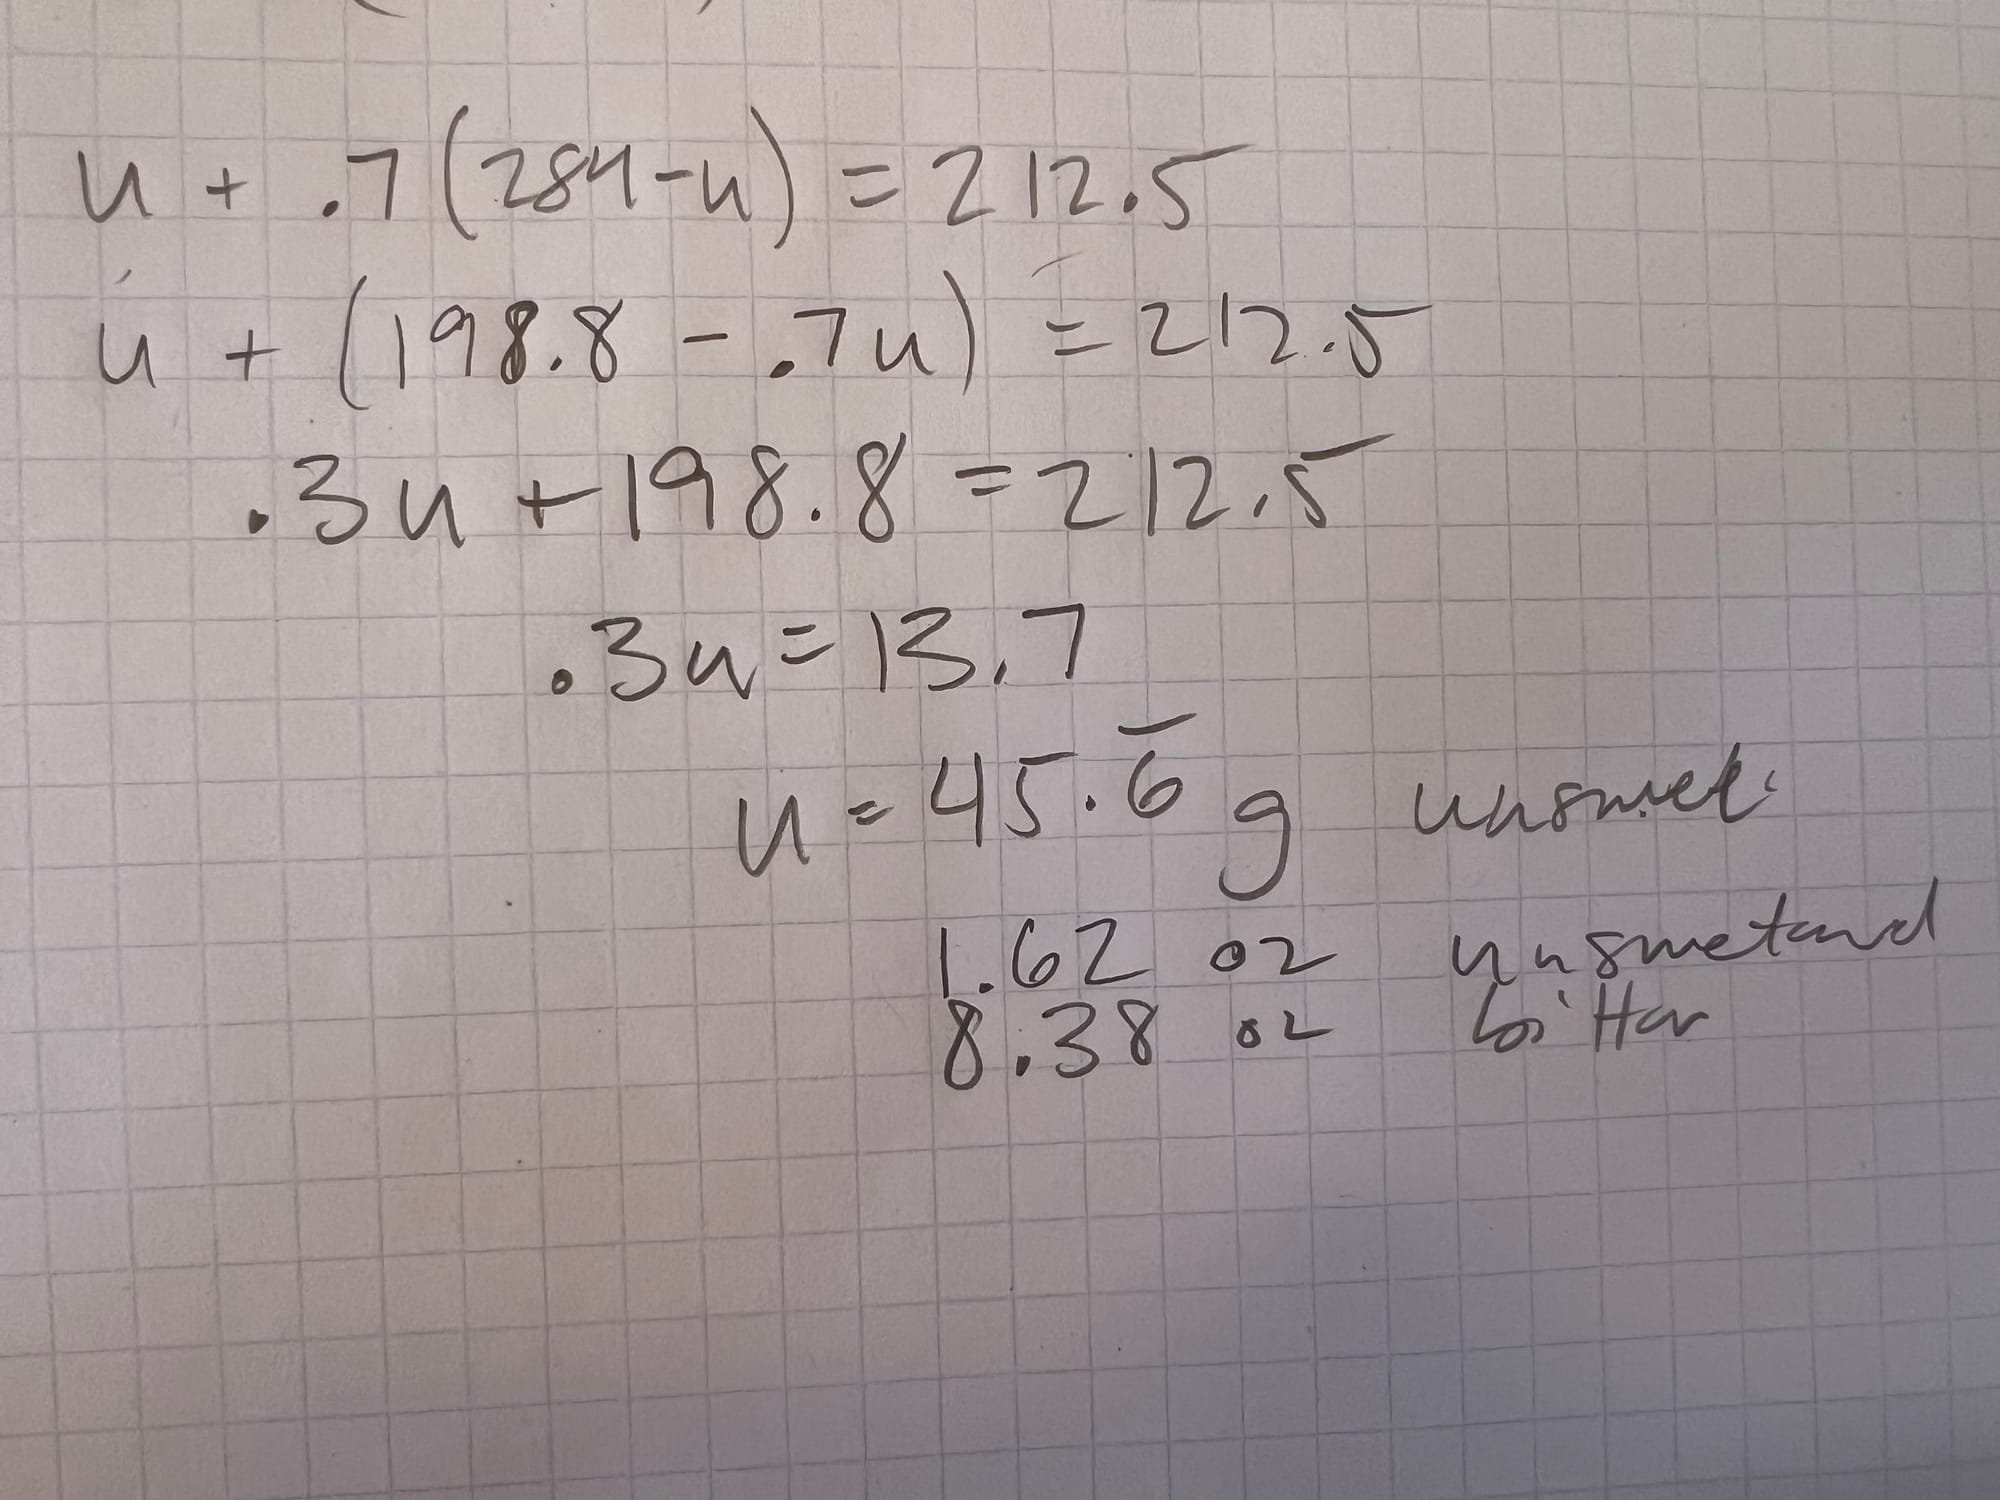 u + .7(284-u) = 212.5
u + (198.8 - .7u) = 212.5
.3u + 198.8 = 212.5
.3u = 13.7
u = 45.6̅ g unsweet.
1.62 oz unsweetened
8.38 oz bitter